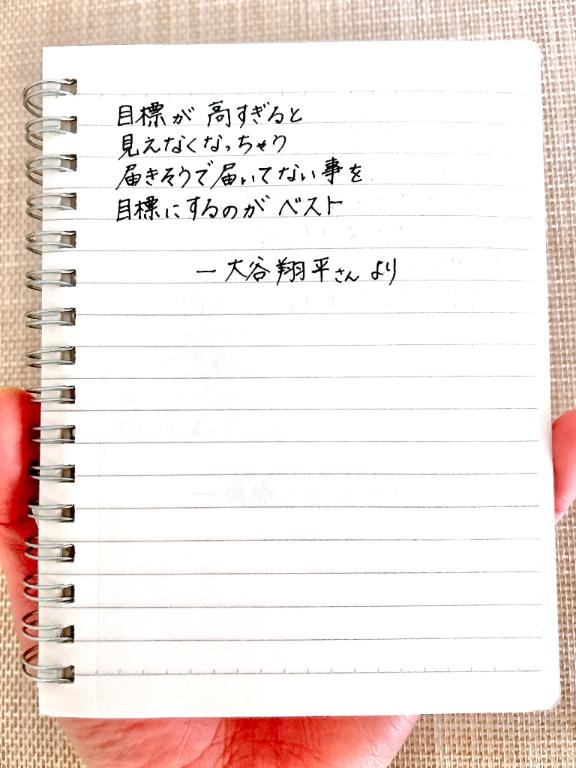 目標が 高すぎると
見えなくなっちゃう
届きそうで届いてない事を
目標にするのが ベスト
ー大谷翔平さん より